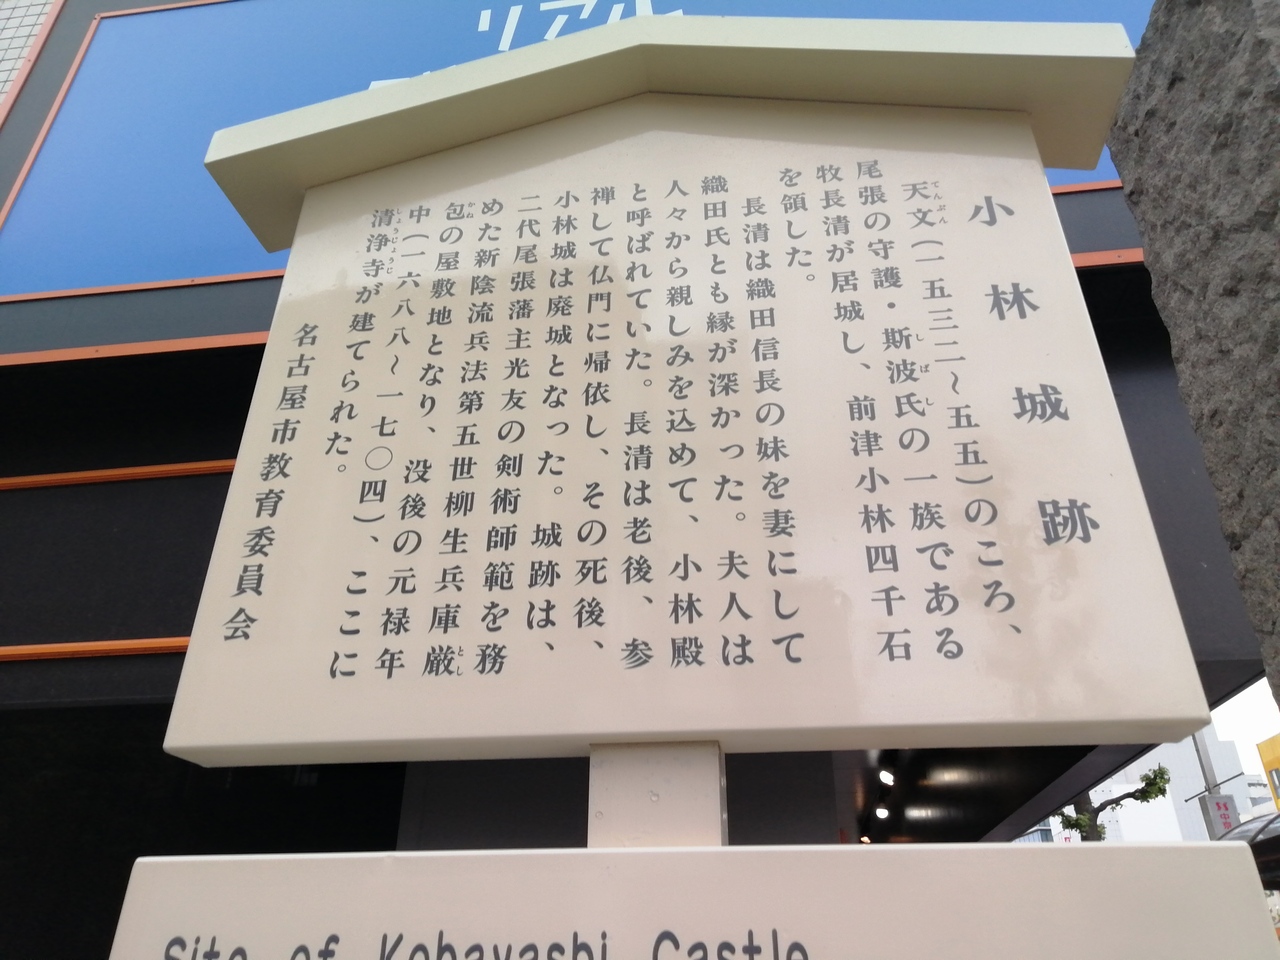 リアル
小林城跡
天文（一五三二～五五）のころ、
尾張の守護・斯波氏の一族である
牧長清が居城し、前津小林四千石
を領した。
長清は織田信長の妹を妻にして
織田氏とも縁が深かった。夫人は
人々から親しみを込めて、小林殿
と呼ばれていた。長清は老後、参
禅して仏門に帰依し、その死後、
小林城は廃城となった。城跡は、
二代尾張藩主光友の剣術師範を務
めた新陰流兵法第五世柳生兵庫厳
包の屋敷地となり、没後の元禄年
中（一六八八～一七〇四）、ここに
清浄寺が建てられた。
名古屋市教育委員会
Site of Kobayashi Castle